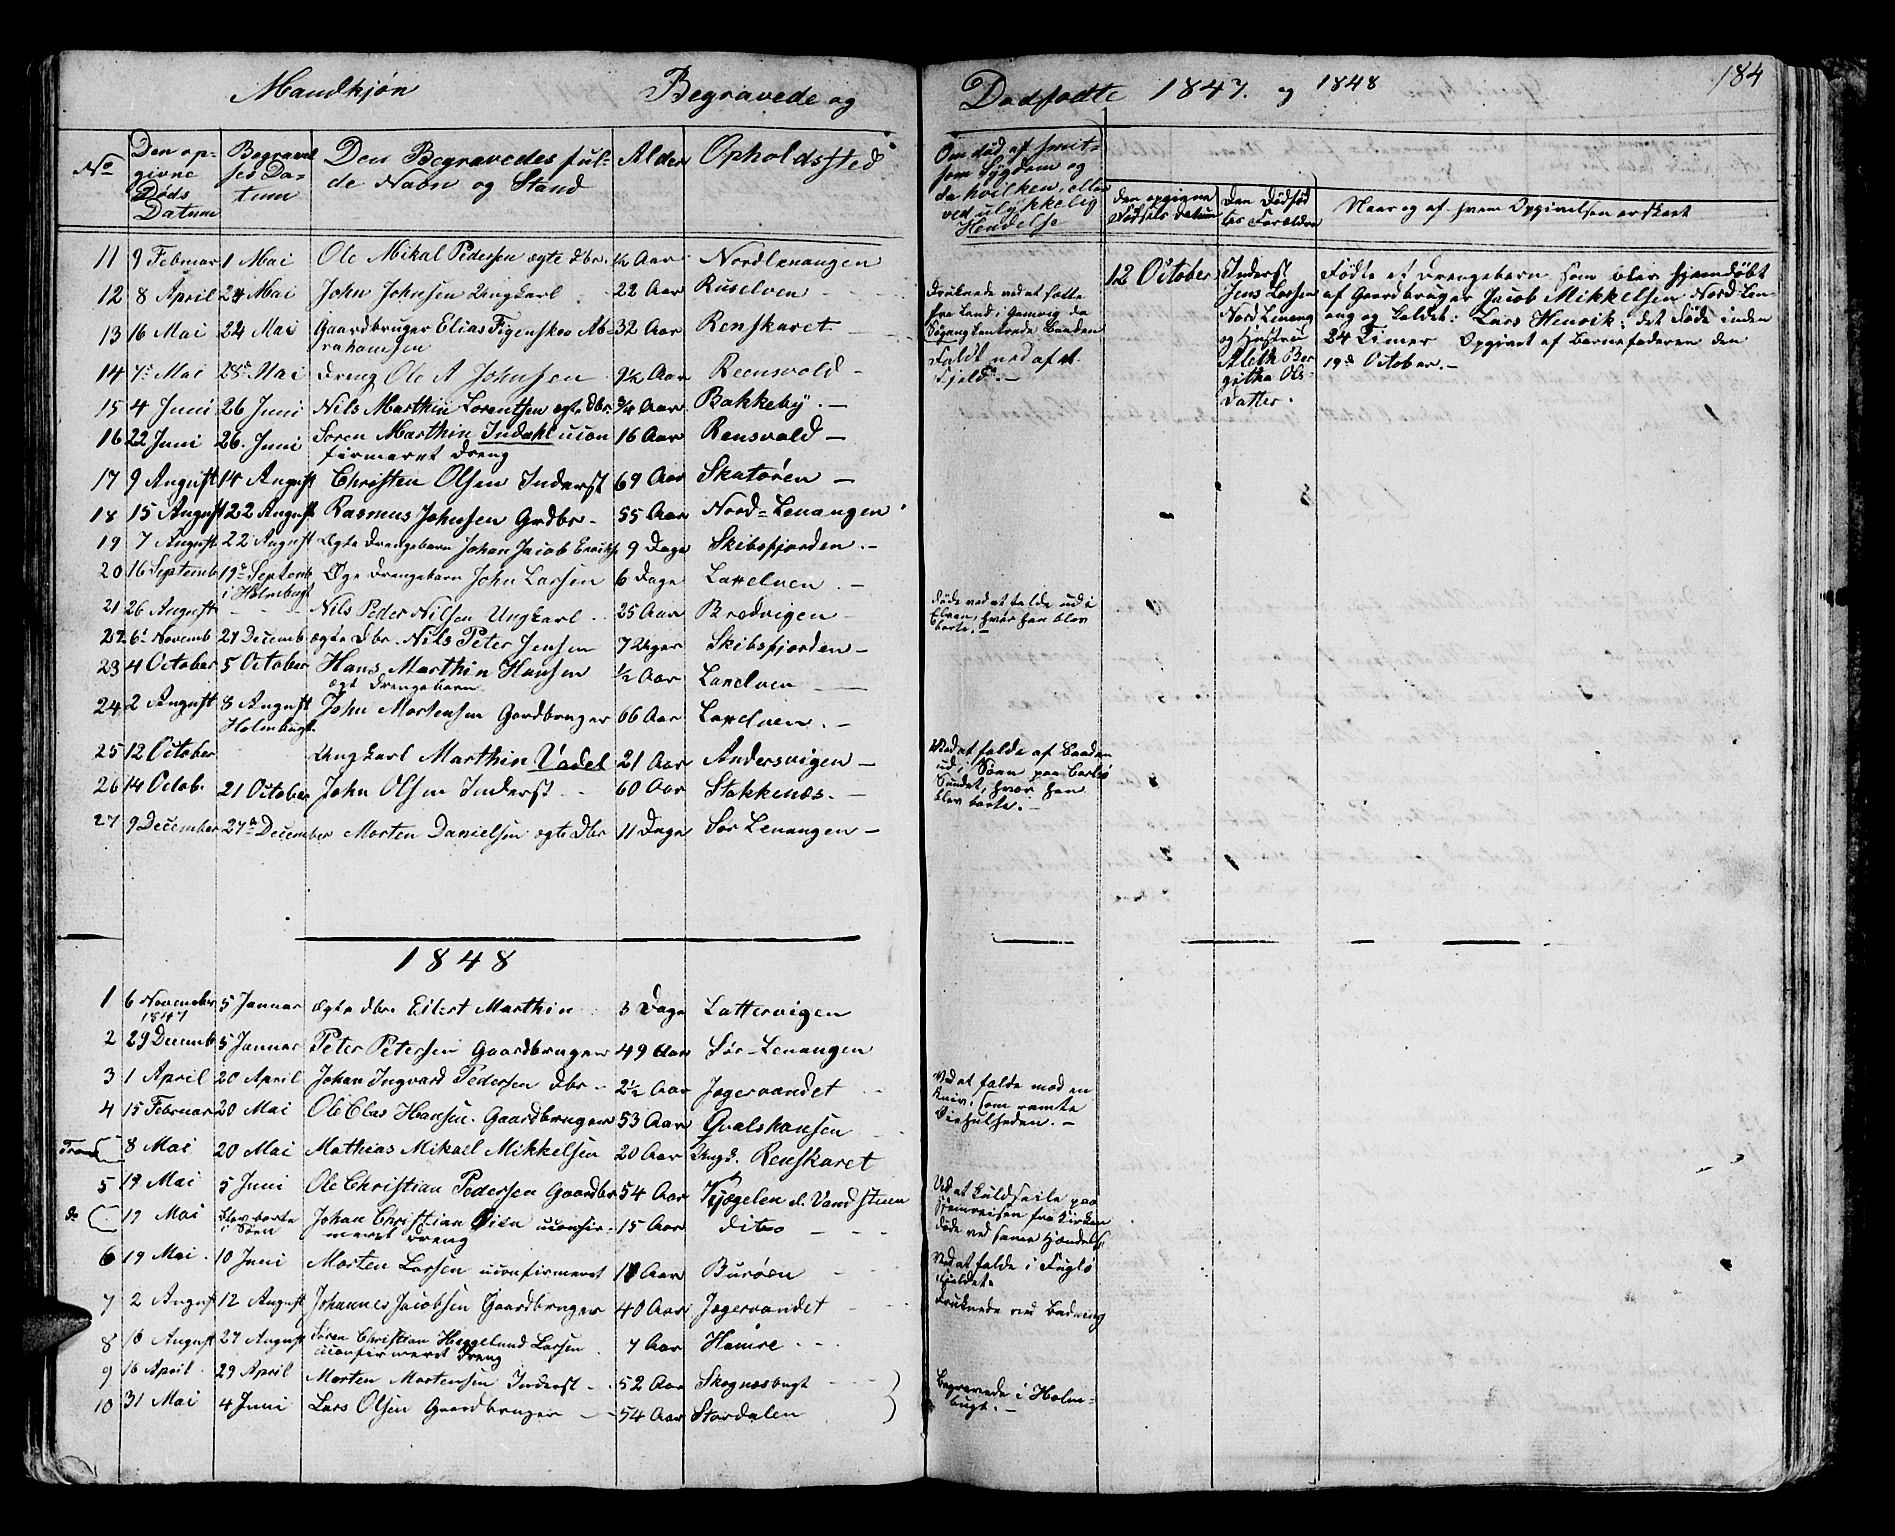 Mandkjøn Begravede og Dødfødte 1847. og 1848 184
No Den opgivne Døds Datum Begravelses Datum Den Begravedes fulde Navn og Stand Alder Opholdssted Om død af smitsom Sygdom og da hvilken, eller ved ulykkelig Hendelse Den opgivne Fødsels Datum Den Dødfødtes Forældre Naar og af hvem Opgivelsen er skeet
11 9 Februar 1 Mai Ole Mikal Pedersen ægte dbr. ½ Aar Nordlenangen
12 8 April 24 Mai John Johnsen Ungkarl 22 Aar Ruselven
13 16 Mai 24 Mai Gaardbruger Elias Figenskov Abrahamsen 32 Aar Renskaret —
14 7de Mai 28de Mai Dreng Ole A Johnsen 9½ Aar Reensvold —
15 4 Juni 26 Juni Nils Marthin Lorentsen ægte dbr ¾ Aar Bakkeby. —
16 22 Juni 26. Juni Søren Marthin Indahl uconfirmeret Dreng 16 Aar Rensvold —
17 9 August 14 August Christen Olsen Inderst 69 Aar Skatøren —
18 15 August 22 August Rasmus Johnsen Grdbr. 55 Aar Nord-Lenangen
19 7 August 22 August Ægte Drengebarn Johan Jacob Ericks 9 Dage Skibsfjorden. —
20 16 Septemb 19de Septemb i Holmbugt Ægte Drengebarn John Larsen 6 Dage Laxelven. —
21 26 August — Nils Peder Nilsen Ungkarl. 25 Aar Bredvigen — Døde ved at falde ud i Elven, hvor han blev borte. —
22 6te Novemb 27 Decemb. ægte Dbr. Nils Peter Jensen 7 Uger Skibsfjorden —
23 4 October 5 October Hans Marthin Hansen ægt Drengebarn ½ Aar Laxelven —
24 2 August 8 August Holmbugt. John Mortensen Gardbruger 66 Aar Laxelven. —
25 12 October Ungkarl Marthin Vadel 21 Aar Andersvigen — Ved at falde af Baaden ud i Søen paa Carlsø Sundet, hvor han blev borte. —
26 14 Octob. 21 October John Olsen Inderst 60 Aar Stakkenæs. —
27 9 December 27de December Morten Danielsen ægte Dbr 11 Dage Sør Lenangen —
Druknede ved at sætte fra Land i
Baaden
Faldt ned af et Fjeld. —
12 October Inderst Jens Larsen Nord Lenang og Hustru Aleth Bergitha Olsdatter.
Fødte et Drengebarn som blev hjemdøbt
af Gaardbruger Jacob Mikkelsen Nord Len-
ang og kaldet: Lars Henrik; det døde inden
24 Timer Opgivet af Barnefaderen den
19de October. —
1848
1 6 November 1847 5 Januar ægte dbr. Eilert Marthin 3 Dage Lattervigen
2 29 Decemb 5 Januar Peter Petersen Gaardbruger 49 Aar Sør-Lenangen
3 1 April 20 April Johan Ingvard Pedersen dbr 2½ Aar Jægervandet Ved at falde mod en Kniv, som ramte
4 15 Februar 20 Mai Ole Elias Hansen. Gaardbruger 53 Aar Qvalshausen
8 Mai 20 Mai Mathias Mikael Mikkelsen 20 Aar Ungd. Renskaret
5 19 Mai 5 Juni Ole Christian Pedersen Gaardbr 54 Aar Kjøgelen d. Vandstuen Ved at kuldseile paa Hjemreisen fra Kirken
do 19 Mai blev borte i Søen Johan Christian uconfirmeret Dreng 15 Aar dito — døde ved samme Hændelse
6 19 Mai. 10 Juni Morten Larsen uconfirmeret 11 Aar Burøen — Ved at falde i Fuglø Fjeldet.
7 2 August 12 August Johannes Jacobsen Gaardbruger 40 Aar Jægervandet — Druknede ved Badning
8 16 August 27 August Søren Christian Heggelund Larsen uconfirmeret Dreng 7 Aar Hamre
9 16 April 29 April Morten Mortensen Inderst 52 Aar Skognæsbugt
10 31 Mai 4 Juni Lars Olsen Gaardbruger 54 Aar Stordalen Begravede i Holmbugt. —